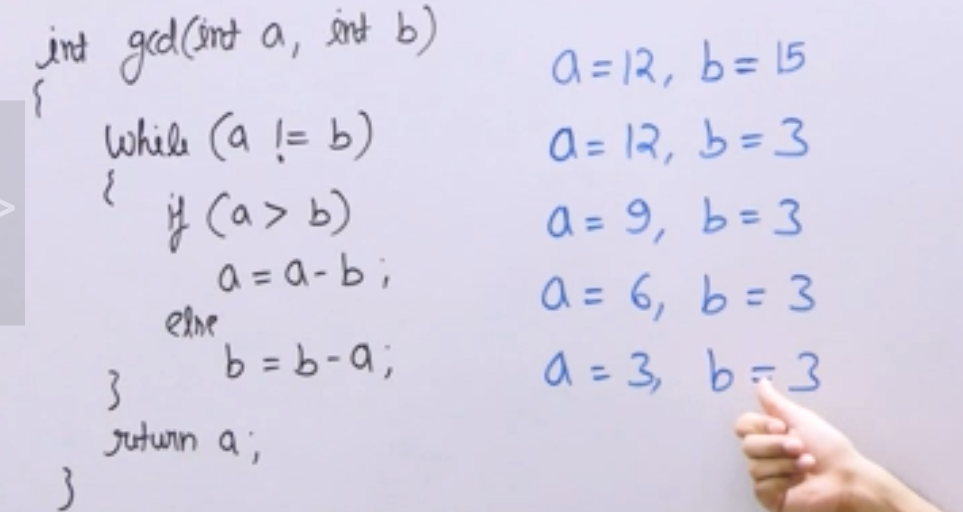 int gcd(int a, int b)
{
while (a != b)
{
if (a > b)
a = a - b ;
else
b = b - a ;
}
return a ;
}
a = 12, b = 15
a = 12, b = 3
a = 9, b = 3
a = 6, b = 3
a = 3, b = 3